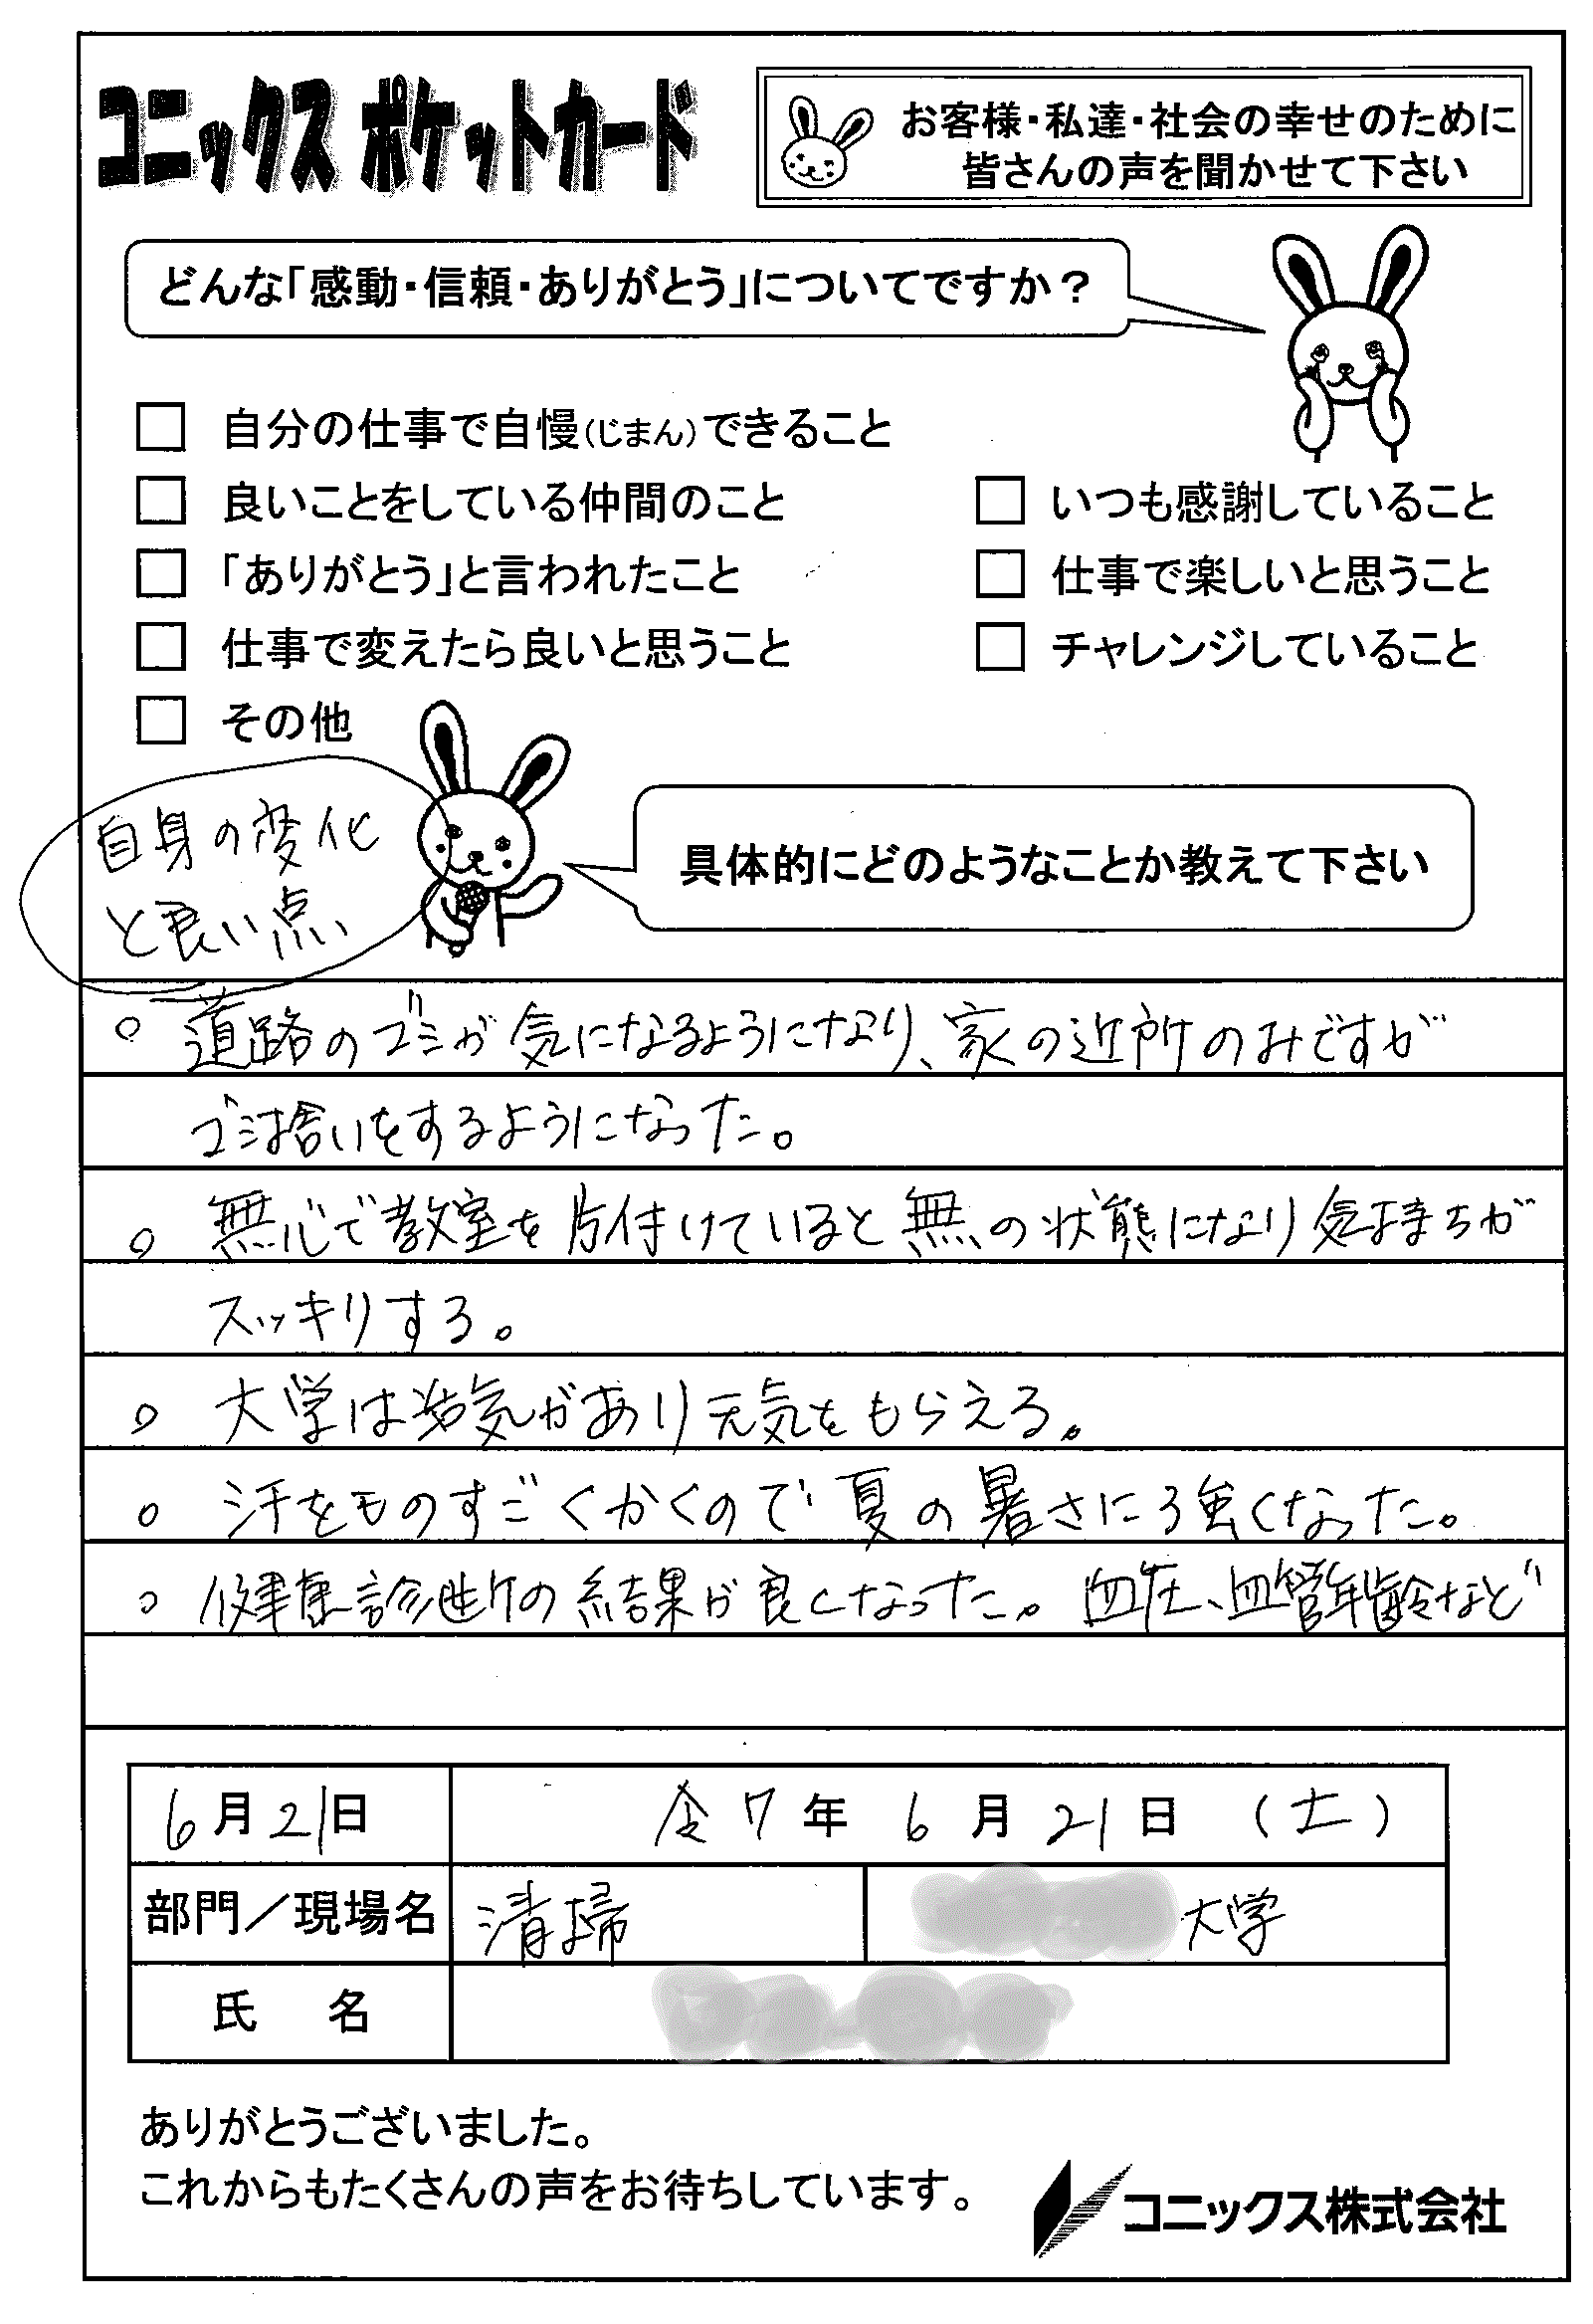 コニックス ポケットカード
お客様・私達・社会の幸せのために
皆さんの声を聞かせて下さい
どんな「感動・信頼・ありがとう」についてですか？
自分の仕事で自慢(じまん)できること
良いことをしている仲間のこと
いつも感謝していること
「ありがとう」と言われたこと
仕事で楽しいと思うこと
仕事で変えたら良いと思うこと
チャレンジしていること
その他
自身の変化
と良い点
具体的にどのようなことか教えて下さい
。道路のゴミが気になるようになり、家の近所のみですが
ゴミ拾いをするようになった。
。無心で教室を片付けていると無の状態になり気持ちが
スッキリする。
。大学は活気があり元気をもらえる。
。汗をものすごくかくので夏の暑さに強くなった。
。健康診断の結果が良くなった。血圧、血管年齢など
6月21日 令7年 6月21日（土）
部門／現場名 清掃 大学
氏 名
ありがとうございました。
これからもたくさんの声をお待ちしています。
コニックス株式会社